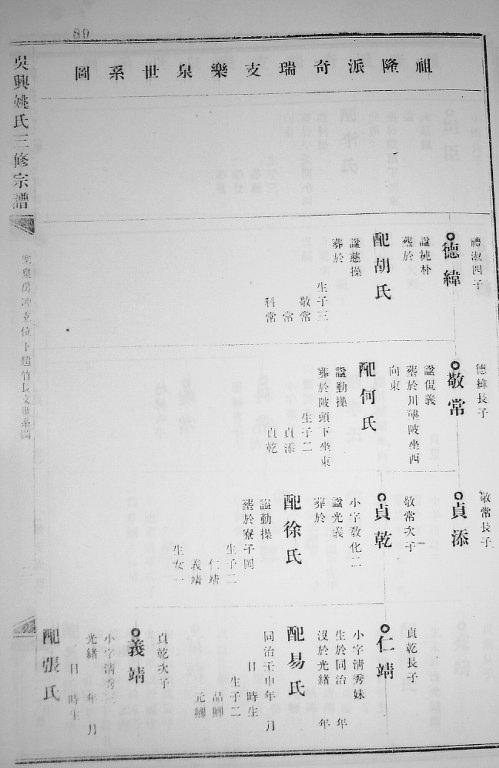 89
祖隆派奇瑞支樂泉世系圖
吳興姚氏三修宗譜
禮淑四子
德緯
諡純朴
葬於
配胡氏
諡慈操
葬於
生子三
敬常
常
科常
德緯長子
敬常
諡侃義
葬於川寧陂坐西
向東
配何氏
諡勤操
葬於陂頭下坐東
生子二
貞添
貞乾
敬常長子
貞添
敬常次子
貞乾
小字敎化二
諡光義
葬於
配徐氏
諡勤操
葬於寮子岡
生子二
仁靖
義靖
生女一
貞乾長子
仁靖
小字清秀妹
生於同治 年
沒於光緒 年
配易氏
同治壬申年 月
日 時生
生子二
品
元
貞乾次子
義靖
小字清秀三
光緒 年 月
日 時生
配張氏